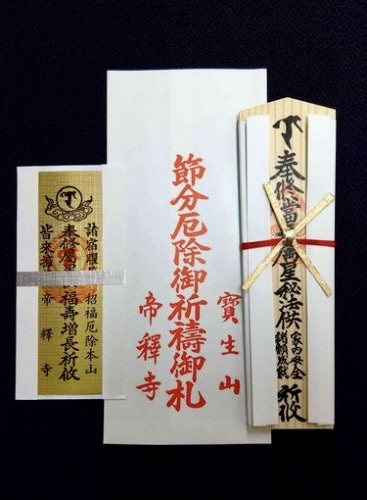 諸宿曜 招福厄除本山
奉修當星 福壽増長祈攸
皆來 帝釋寺
節分厄除御祈禱御札
寶生山
帝釋寺
奉修當 星秘法供 祈攸
家内安全
諸願成就